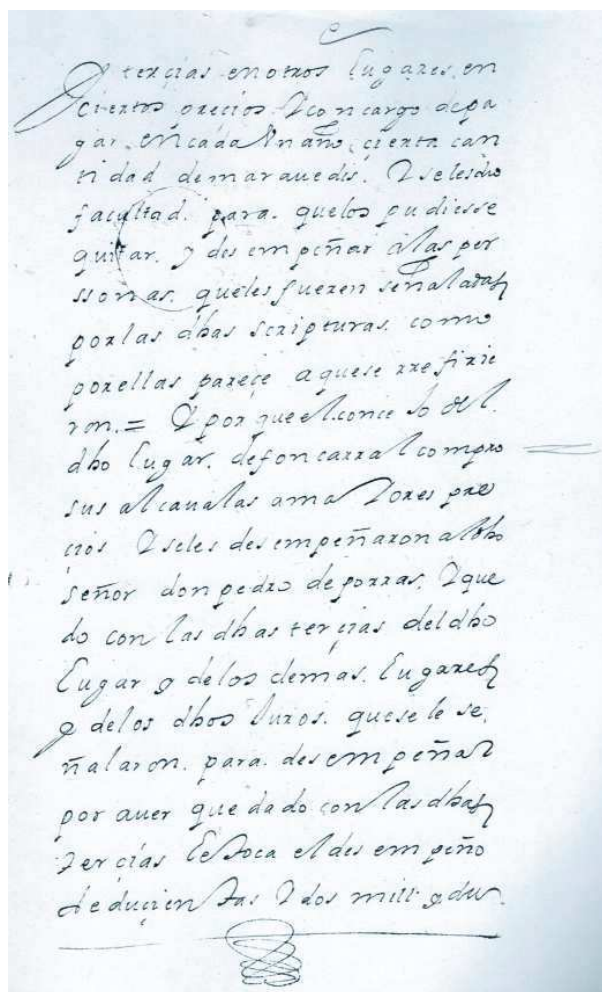 Y tercias en otros lugares. en
ciertos precios. Y con cargo de pa
gar. en cada Un año, cierta can
tidad de maravedis. Y se les dio
facultad. para. que los pudiesse
quitar. y desempeñar a las per
ssonas. que les fueren señaladas
por las dhas scripturas. como
por ellas pareçe a que se rrefirie
ron. = Y por que el conce Jo del.
dho lugar. de foncarral compro
sus alcaualas a maIores pre
cios Y se les desempeñaron al dho
señor don pedro de porras. Y que
do con las dhas terçias del dho
lugar y de los demas. lugares
y de los dhos Juros. que se le se.
ñalaron. para. desempeñar
por auer quedado con las dhas
tercias le toca el desempeño
de duçientas Y dos mill y du.